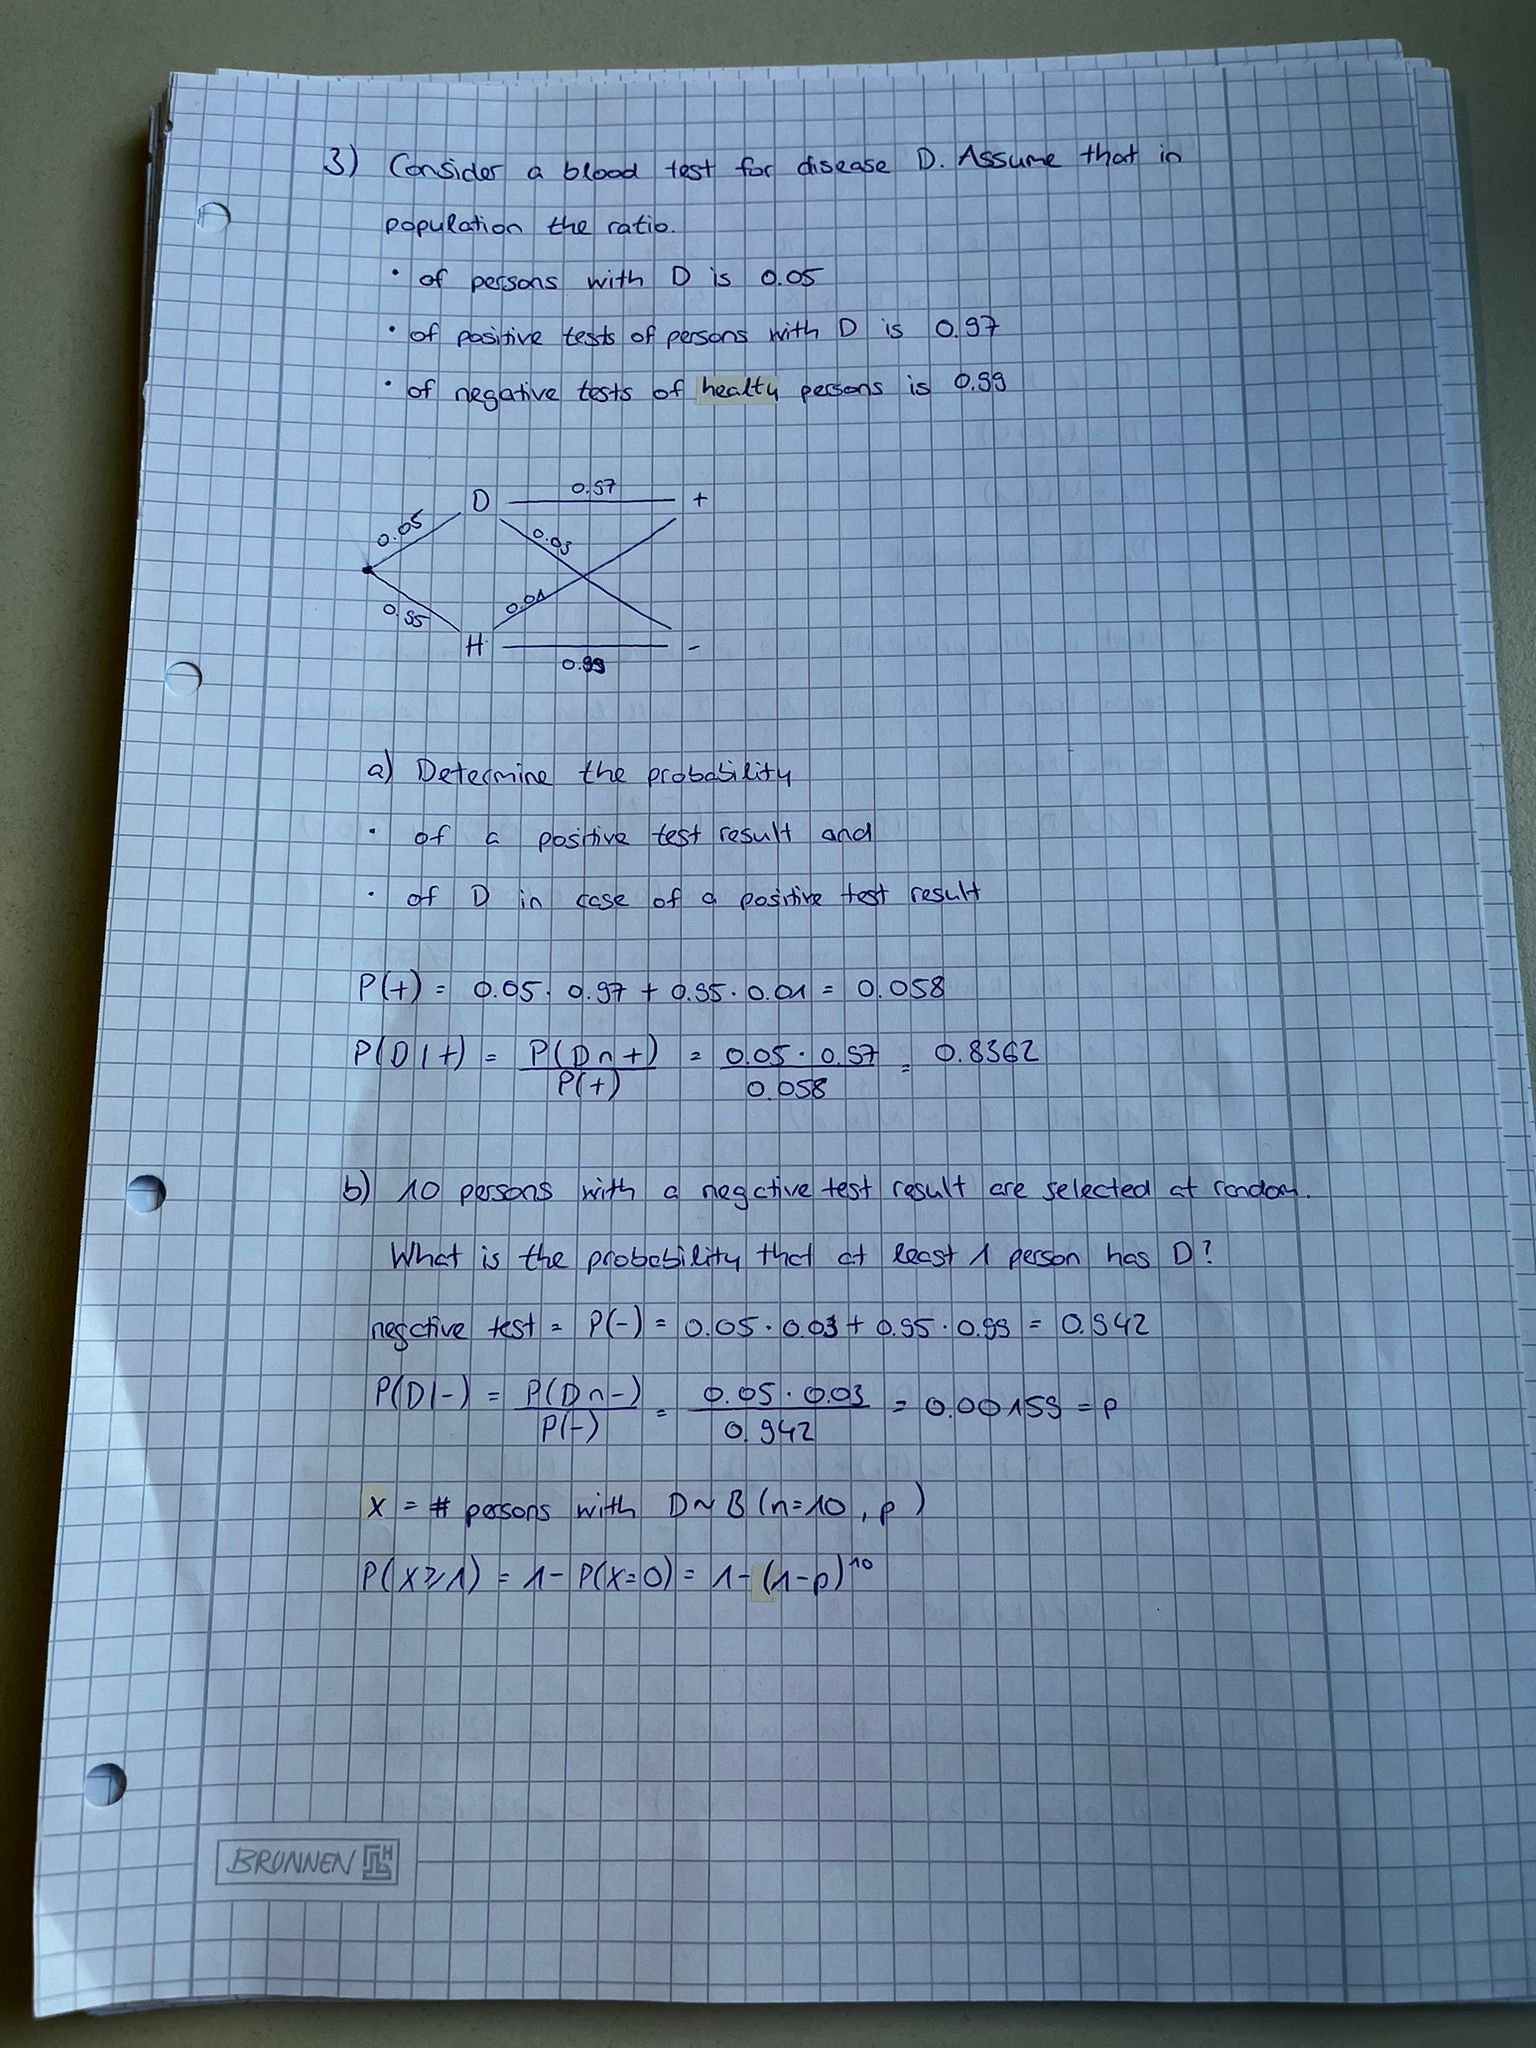 3) Consider a blood test for disease D. Assume that in
population the ratio.
• of persons with D is 0.05
• of positive tests of persons with D is 0.97
• of negative tests of healty persons is 0.99
D 0.97 +
0.05
0.03
0.01
0.95
H - 
0.99
a) Determine the probability
• of a positive test result and
• of D in case of a positive test result
P(+) = 0.05 · 0.97 + 0.95 · 0.01 = 0.058
P(D|+) = P(D∩+) / P(+) = 0.05 · 0.97 / 0.058 = 0.8362
b) 10 persons with a negative test result are selected at random.
What is the probability that at least 1 person has D?
negative test = P(-) = 0.05 · 0.03 + 0.95 · 0.99 = 0.942
P(D|-) = P(D∩-) / P(-) = 0.05 · 0.03 / 0.942 = 0.00159 = p
X = # persons with D ~ B(n=10, p)
P(X≥1) = 1 - P(X=0) = 1 - (1-p)^10
BRUNNEN